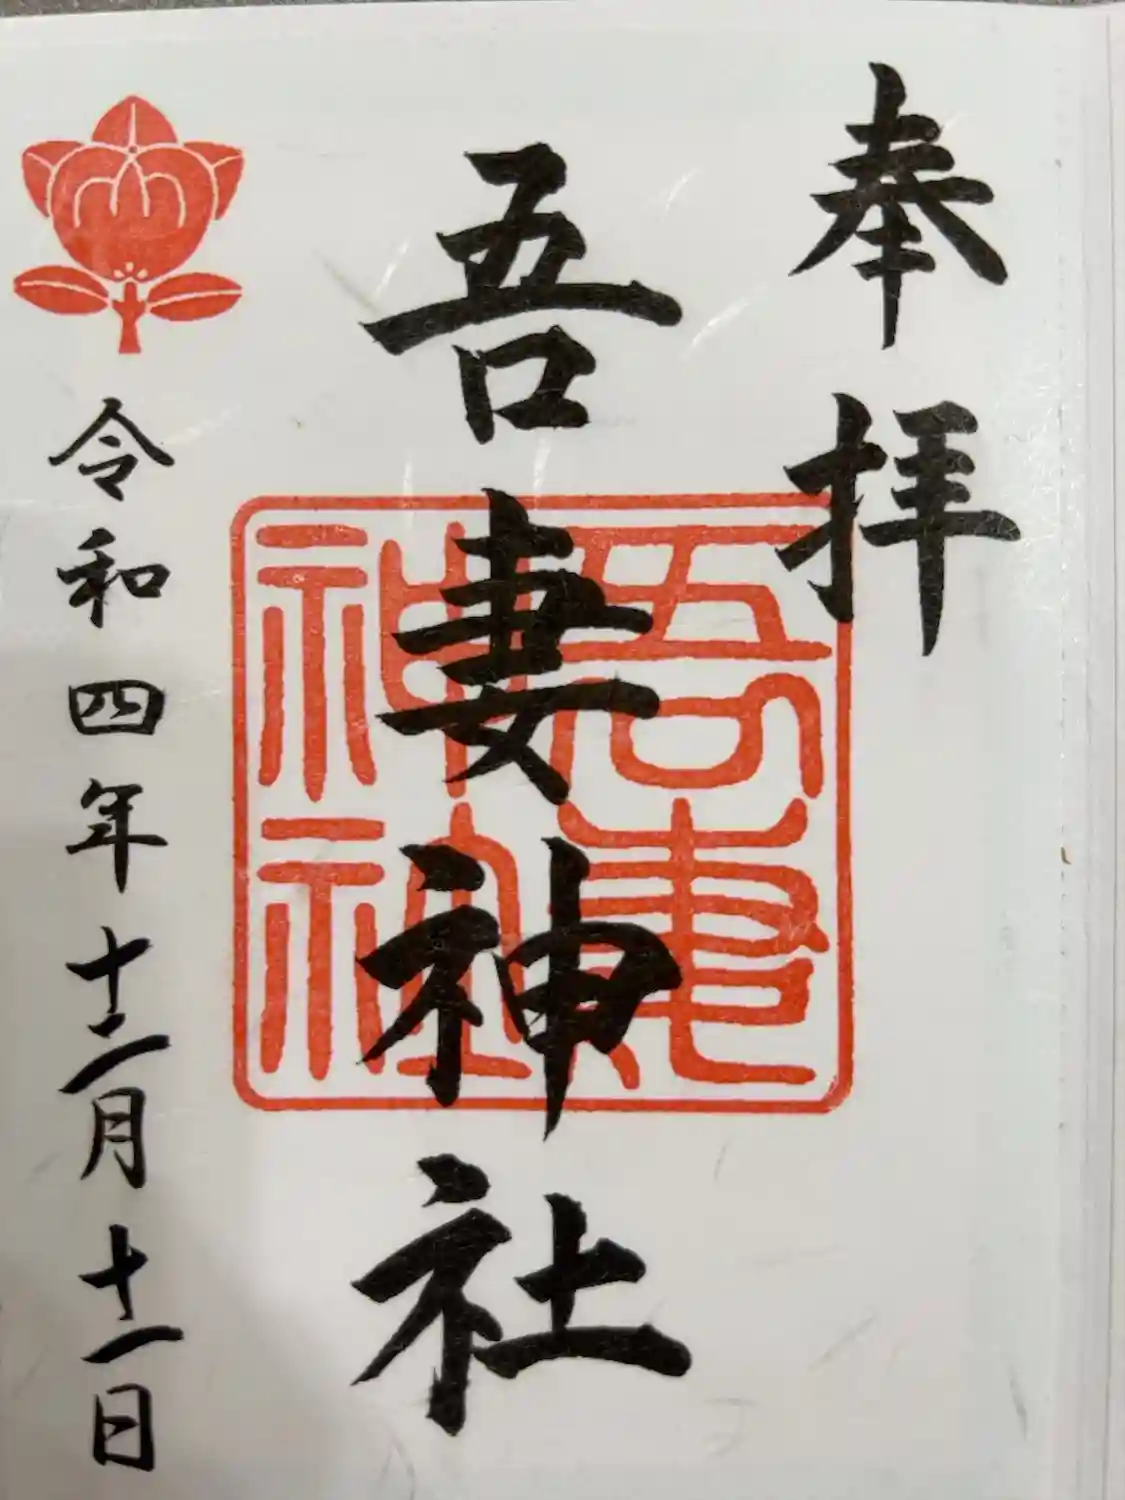 奉拝
吾妻神社
吾妻
神社
令和四年十二月十一日